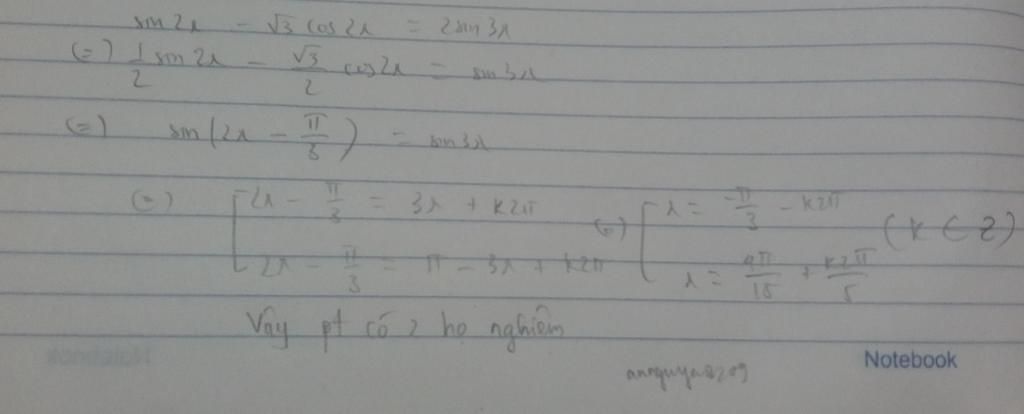 sin2x - √3 cos2x = 2sin3x
(=) 1/2 sin2x - √3/2 cos2x = sin3x
(=) sin(2x - π/3) = sin3x
(=) [ 2x - π/3 = 3x + k2π (=) [ x = -π/3 - k2π (k ∈ Z)
2x - π/3 = π - 3x + k2π x = 4π/15 + k2π/5
Vậy pt có 2 họ nghiệm
Notebook